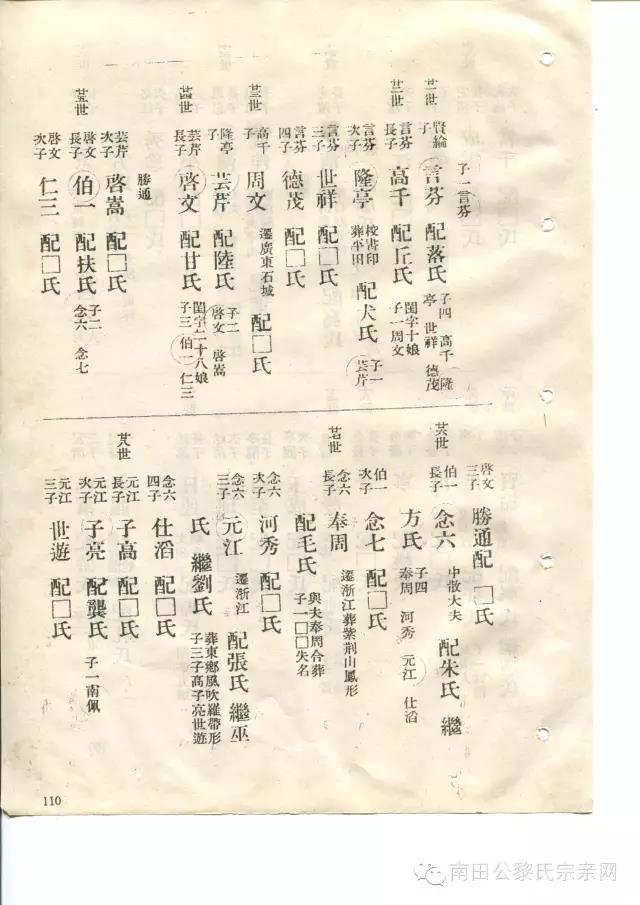 子一言芬
廿一世
賢綸子 言芬 配落氏 子四 高千 隆亭 世祥 德茂
廿二世
言芬長子 高千 配丘氏 閨字十娘 子一周文
言芬次子 隆亭 梭書印 葬平田 配犬氏 子一 芸芹
言芬三子 世祥 配□氏
言芬四子 德茂 配□氏
廿三世
高千子 周文 遷廣東石城 配□氏
隆亭子 芸芹 配陸氏 子二 啓文 啓嵩
廿四世
芸芹長子 啓文 配甘氏 閨字二十八娘 子三 伯一 仁三 勝通
芸芹次子 啓嵩 配□氏
廿五世
啓文長子 伯一 配扶氏 子二 念六 念七
啓文次子 仁三 配□氏
啓文三子 勝通配 □氏
廿六世
伯一長子 念六 中散大夫 配朱氏 繼
方氏 子四 奉周 河秀 元江 仕滔
伯一次子 念七 配□氏
廿七世
念六長子 奉周 遷浙江葬紫荆山鳳形
配毛氏 與夫奉周合葬 子一□□失名
念六次子 河秀 配□氏
念六三子 元江 遷浙江 配張氏 繼巫
氏 繼劉氏 葬東鄉風吹羅帶形 子三子高子亮世遊
念六四子 仕滔 配□氏
廿八世
元江長子 子高 配□氏
元江次子 子亮 配龔氏 子一南佩
元江三子 世遊 配□氏
110
南田公黎氏宗亲网